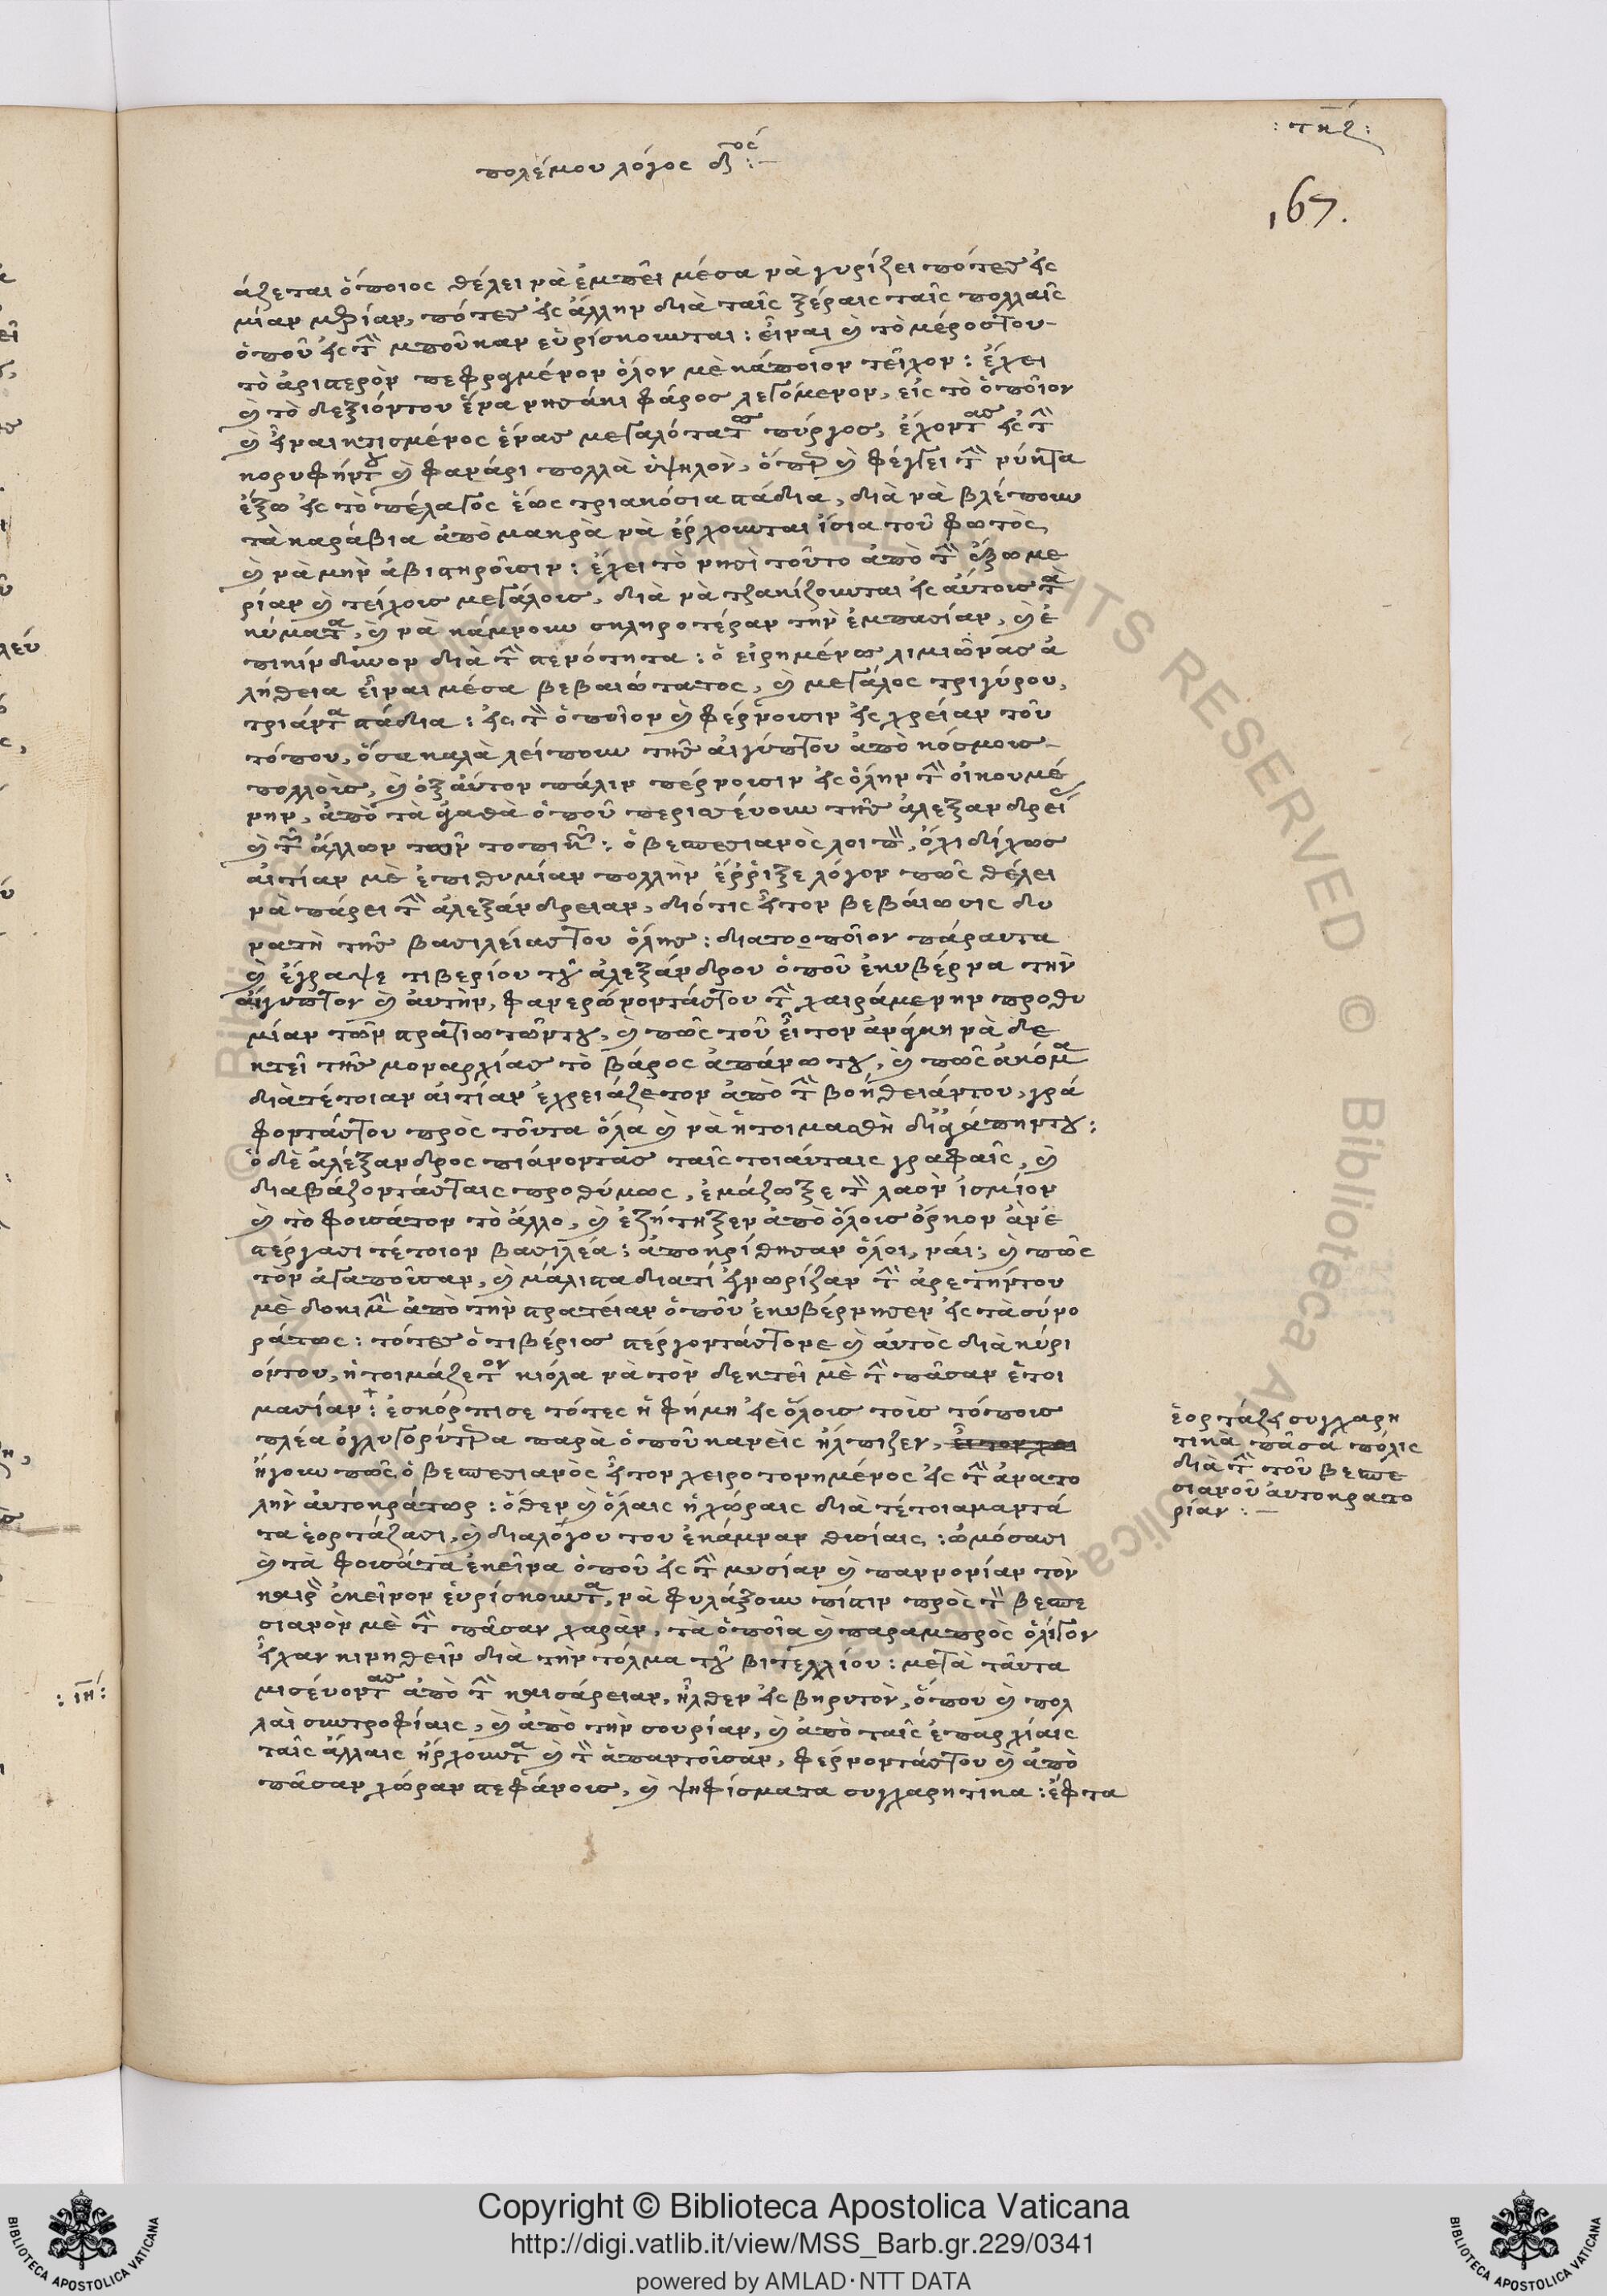 : της :
πολέμου λόγος δος :-
167.
άζεται ὅποιος θέλει νὰ ἐμπεῖ μέσα νὰ γυρίζει πότες εἰς
μίαν μερίαν, πότες εἰς ἄλλην διὰ ταῖς ξέραις ταῖς πολλαῖς
ὁποῦ εἰς τὴν μποῦκαν εὑρίσκουνται : εἶναι καὶ τὸ μέροστου
τὸ ἀριστερὸν πεφραγμένον ὅλον μὲ κάποῖον τεῖχον : ἔχει
καὶ τὸ δεξιόντου ἕνα νησάκι φάρος λεγόμενον, εἰς τὸ ὁποῖον
καὶ εἶναι κτισμένος ἕνας μεγαλότατος πύργος, ἔχοντας εἰς τὴν
κορυφήντου καὶ φανάρι πολλὰ ὑψηλὸν, ὅπερ καὶ φέγγει τὴν νύκτα
ἔξω εἰς τὸ πέλαγος ἕως τριακόσια στάδια, διὰ νὰ βλέπουν
τὰ καράβια ἀπὸ μακρὰ νὰ ἔρχουνται ἴσια τοῦ φωτὸς,
καὶ νὰ μὴν ἀβιστηροῦσιν : ἔχει τὸ νησὶ τοῦτο ἀπὸ τὴν ἔξω με
ρίαν καὶ τείχους μεγάλους, διὰ νὰ τζακίζουνται εἰς αὐτους τὰ
κύματα, καὶ νὰ κάμνουν σκληροτέραν τὴν ἐμπασίαν, καὶ ἐ
πικίνδυνον διὰ τὴν στενότητα : ὁ εἰρημένος λιμιῶνας ἀ
λήθεια εἶναι μέσα βεβαιώτατος, καὶ μεγάλος τριγύρου,
τριάντα στάδια : εἰς τὸν ὁποῖον καὶ φέρνουσιν εἰς χρείαν τοῦ
τόπου, ὅσα καλὰ λείπουν τῆς αἰγύπτου ἀπὸ κόσμους
πολλοὺς, καὶ ὀξαύτον πάλιν πέρνουσιν εἰς ὅλην τὴν οἰκουμέ
νην, ἀπὸ τὰ ἀγαθὰ ὁποῦ περισεύουν τῆς ἀλεξανδρείας
καὶ τῶν ἄλλων τῶν τοπικῶν : ὁ βεσπεσιανὸς λοιπὸν, ὄχι δίχως
αἰτίαν μὲ ἐπιθυμίαν πολλὴν ἔρριξε λόγον πῶς θέλει
νὰ πάρει τὴν ἀλεξάνδρειαν, διότις εἶτον βεβαίωσις δυ
νατὴ τῆς βασιλείαςτου ὅλης : διατοοποῖον πάραυτα
καὶ ἔγραψε τιβερίου τοῦ ἀλεξάνδρου ὁποῦ ἐκυβέρνα τὴν
αἴγυπτον καὶ ἀυτὴν, φανερώνοντάςτου τὴν χαιράμενην προθυ
μίαν τῶν στρατιωτῶντου, καὶ πῶς τοῦ εἶτον ἀνάγκη νὰ δε
κτεῖ τῆς μοναρχίας τὸ βάρος ἀπάνωτου, καὶ πῶς ἀκόμα
διὰ τέτοιαν αἰτίαν ἐχρειάζετον ἀπὸ τὴν βοήθειάντου, γρά
φοντάςτου πρὸς τοῦτα ὅλα καὶ νὰ ἡτοιμασθῆ δι ἀγάπηντου :
ὁ δὲ ἀλέξανδρος πιάνοντας ταῖς τοιαύταις γραφαῖς, καὶ
διαβάζοντάςταις προθύμως, ἐμάζωξε τὸν λαὸν ἰσμίον
καὶ τὸ φουσάτον τὸ ἄλλο, καὶ ἐζήτηξεν ἀπὸ ὅλους ὅρκον ἂν ἐ
στέργασι τέτοιον βασιλέα : ἀποκρίθησαν ὅλοι, ναί, καὶ πῶς
τὸν ἀγαποῦσαν, καὶ μάλιστα διατί ἐγνωρίζαν τὴν ἀρετήντου
μὲ δοκιμὴν ἀπὸ τὴν στρατείαν ὁποῦ ἐκυβέρνησεν εἰς τὰ σύνο
ράτως : τότες ὁ τιβέριος στέργοντάςτονε καὶ αὐτὸς διὰ κύρι
όντου, ἡτοιμάζετον κιόλα νὰ τὸν δεκτεῖ μὲ τὴν πᾶσαν ἑτοι
μασίαν : ἐσκόρπισε τότες ἡ φήμη εἰς ὅλους τοὺς τόπους
πλέα ὀγλυγορότερα παρὰ ὁποῦ κανεὶς ἤλπιζεν,
ἤγουν πῶς ὁ βεσπεσιανὸς εἶτον χειροτονημένος εἰς τὴν ἀνατο
λὴν αὐτοκράτωρ : ὅθεν καὶ ὅλαις ἡ χώραις διὰ τέτοια μαντά
τα ἑορτάζασι, καὶ διαλόγου του ἐκάμναν θυσίαις : ὠμόσασι
καὶ τὰ φουσάτα ἐκεῖνα ὁποῦ εἰς τὴν μυσίαν καὶ παννονίαν τὸν
καιρὸν ἐκεῖνον εὑρίσκουντα, νὰ φυλάξουν πίστιν πρὸς τὸν βεσπε
σιανὸν μὲ τὴν πᾶσαν χαρὰν, τὰ ὁποῖα καὶ παραμπρὸς ὀλίγον
εἶχαν κινηθεῖν διὰ τὴν τόλμα τοῦ βιτελλίου : μετὰ ταῦτα
μισεύοντας ἀπὸ τὴν καισάρειαν, ἦλθεν εἰς βηρυτὸν, ὅπου καὶ πολ
λαὶ συντροφίαις, καὶ ἀπὸ τὴν συρίαν, καὶ ἀπὸ ταῖς ἐπαρχίαις
ταῖς ἄλλαις ἤρχουντα καὶ τὸν ἀπαντοῦσαν, φέρνοντάςτου καὶ ἀπὸ
πᾶσαν χώραν στεφάνους, καὶ ψηφίσματα συγχαρητικα : ἔφτα
ἑορτάζει συγχαρη
τικὰ πᾶσα πόλις
διὰ τὴν τοῦ βεσπε
σιανοῦ αὐτοκρατο
ρίαν :-
: ιη :
Copyright © Biblioteca Apostolica Vaticana
http://digi.vatlib.it/view/MSS_Barb.gr.229/0341
powered by AMLAD·NTT DATA
BIBLIOTECA APOSTOLICA VATICANA
BIBLIOTECA APOSTOLICA VATICANA